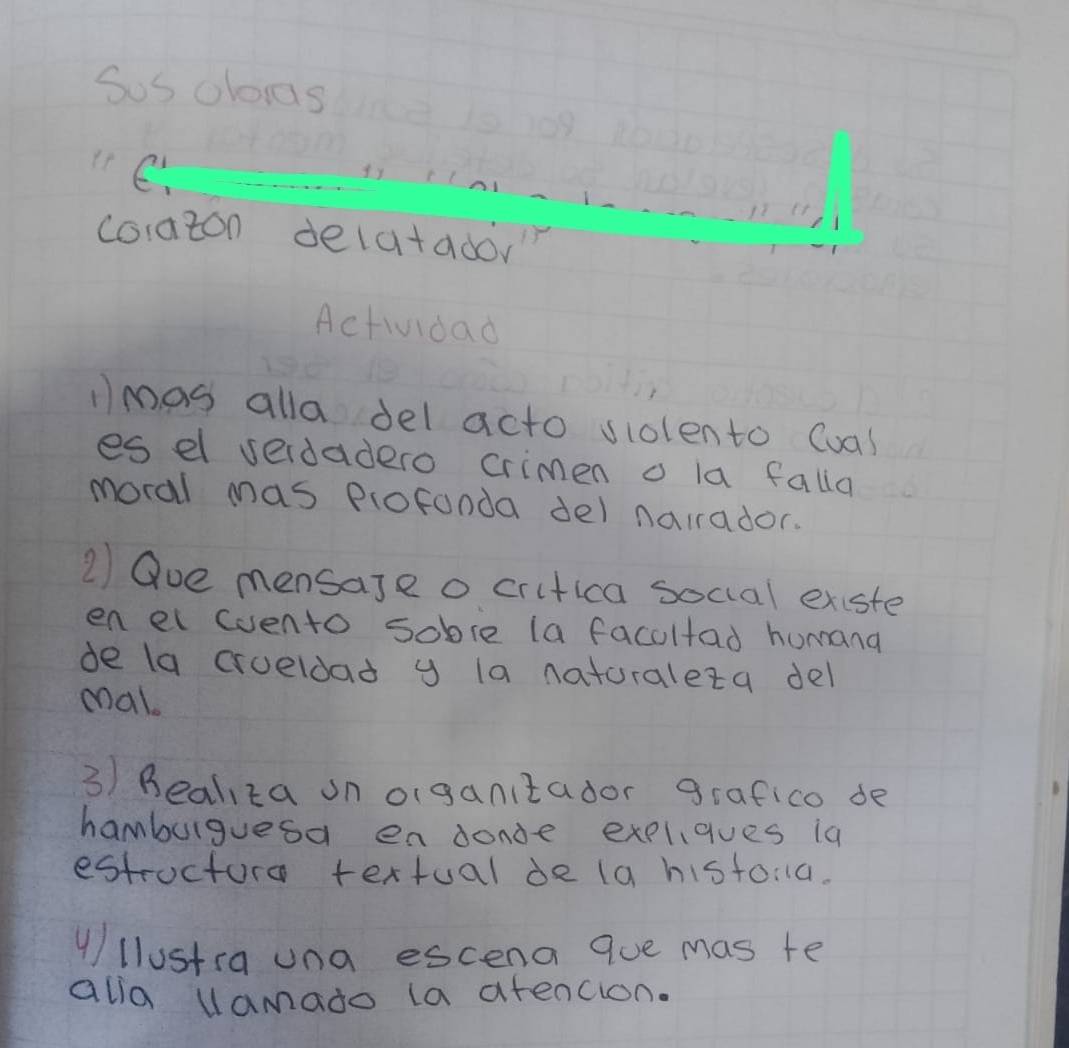 Sus obras
"El
corazón delatador"
Actividad
1) mas alla del acto violento cual
es el verdadero crimen o la falla
moral mas profunda del narrador.
2) Que mensaje o critica social existe
en el cuento sobre la facultad humana
de la crueldad y la naturaleza del
mal.
3) Realiza un organizador grafico de
hamburguesa en donde expliques la
estructura textual de la historia.
4) Ilustra una escena que mas te
alla llamado la atencion.